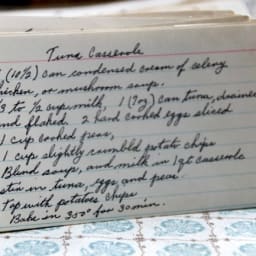 Tuna Casserole
1 (10½) can condensed cream of celery
chicken, or mushroom soup.
⅓ to ½ cup milk, 1 (7oz) can tuna, drained
and flaked. 2 hard cooked eggs sliced
1 cup cooked peas,
1 cup slightly crumbled potato chips
Blend soup, and milk in 1 qt casserole
stir in tuna, eggs, and peas.
Top with potatoes chips
Bake in 350° for 30 min.